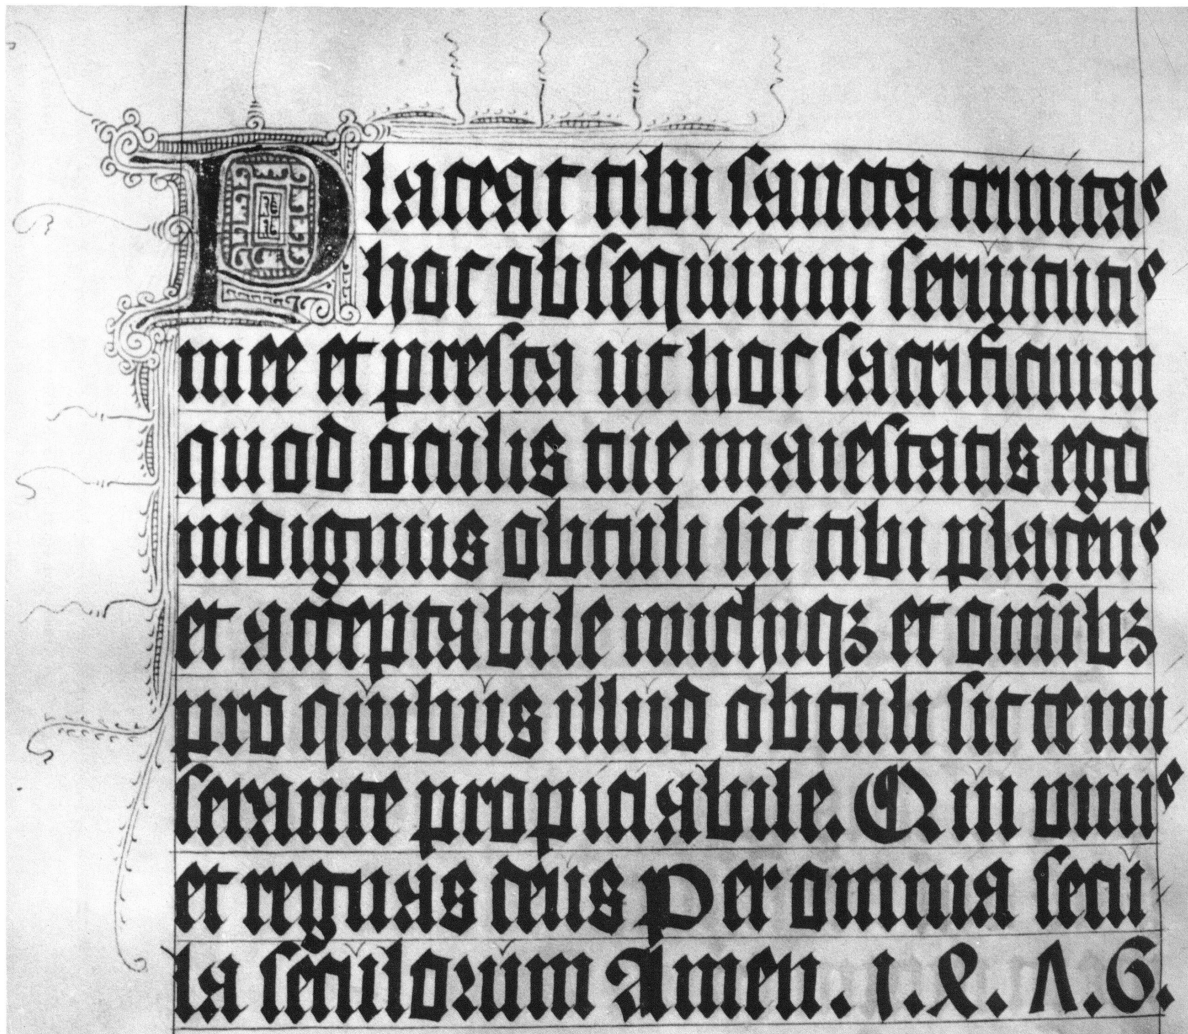 Placeat tibi sancta trinitas
hoc obsequium seruitutis
mee et presta ut hoc sacrificium
quod oculis tue maiestatis ego
indignus obtuli sit tibi placens
et acceptabile michiqꝫ et om̄ibꝫ
pro quibus illud obtuli sit te mi
serante propiciabile. Qui viuis
et regnas deus Per omnia secu
la seculorum Amen. 1.8.Λ.6.